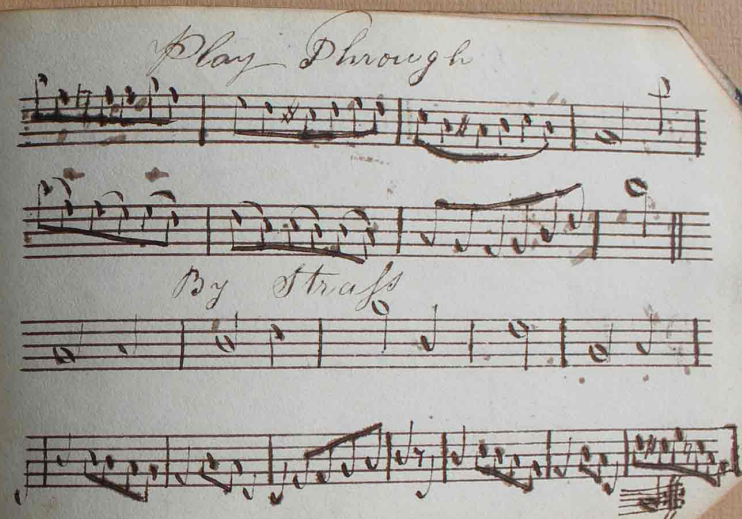 Play Through
By Strass